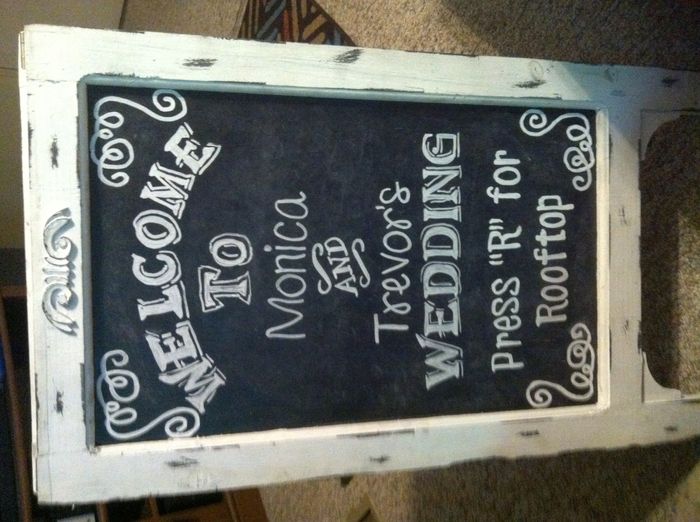 WELCOME
TO
Monica
AND
Trevor's
WEDDING
Press "R" for
Rooftop